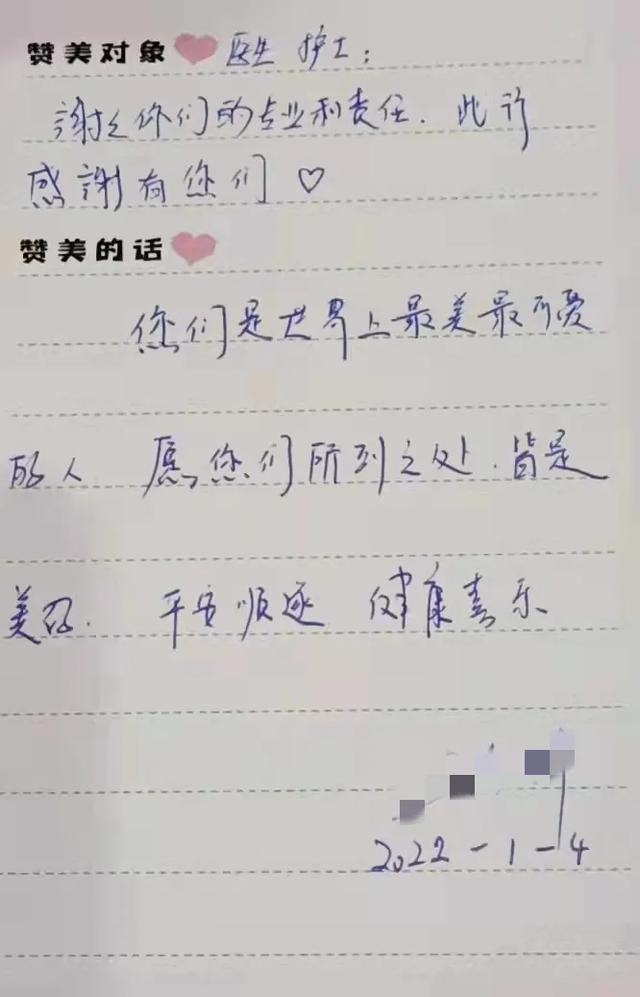 赞美对象 医生 护士：
謝之你们的专业和责任. 此行
感謝有您们 ♡
赞美的话
您们是世界上最美最可爱
的人 愿您们所到之处. 皆是
美好. 平安顺遂 健康喜乐
2022-1-4